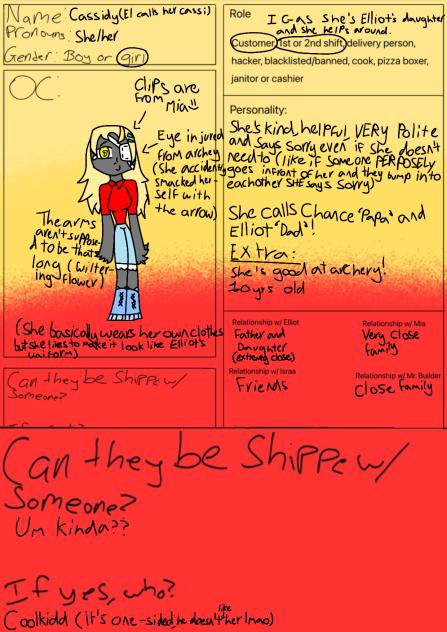 Name: Cassidy(El calls her cassi)
Pronouns: She/her
Gender: Boy or girl
OC:
Clips are
from
Mia!!
Eye injured
from archery
(She accidently
smacked her-
self with
the arrow)
The arms
aren't suppose-
d to be that
long (wilter-
ing flower)
(She basically wears her own clothes
but she likes to make it look like Elliot's
uniform)
Can they be Shippe w/
Someone?
Role
I Gas She's Elliot's daughter
and she helps around.
Customer, 1st or 2nd shift, delivery person,
hacker, blacklisted/banned, cook, pizza boxer,
janitor or cashier
Personality:
She's kind, helpful, VERY Polite
and Says Sorry even if She doesn't
need to (like if someone PERPOSELY
goes infront of her and they bump into
eachother SHE says Sorry)
She calls Chance "Papa" and
Elliot "Dad"!
Extra:
She's good at archery!
10 yrs old
Relationship w/ Elliot
Father and
Daughter
(extremely close)
Relationship w/ Mia
Very close
family
Relationship w/ Israa
Friends
Relationship w/ Mr. Builder
Close family
Can they be Shippe w/
Someone?
Um kinda??
If yes, who?
Coolkidd (it's one-sided, he doesn't like her lmao)